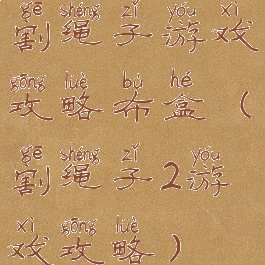 gē shéng zǐ yóu xì
割绳子游戏
gōng lüè bù hé
攻略布盒（
gē shéng zǐ yóu
割绳子2游
xì gōng lüè
戏攻略）